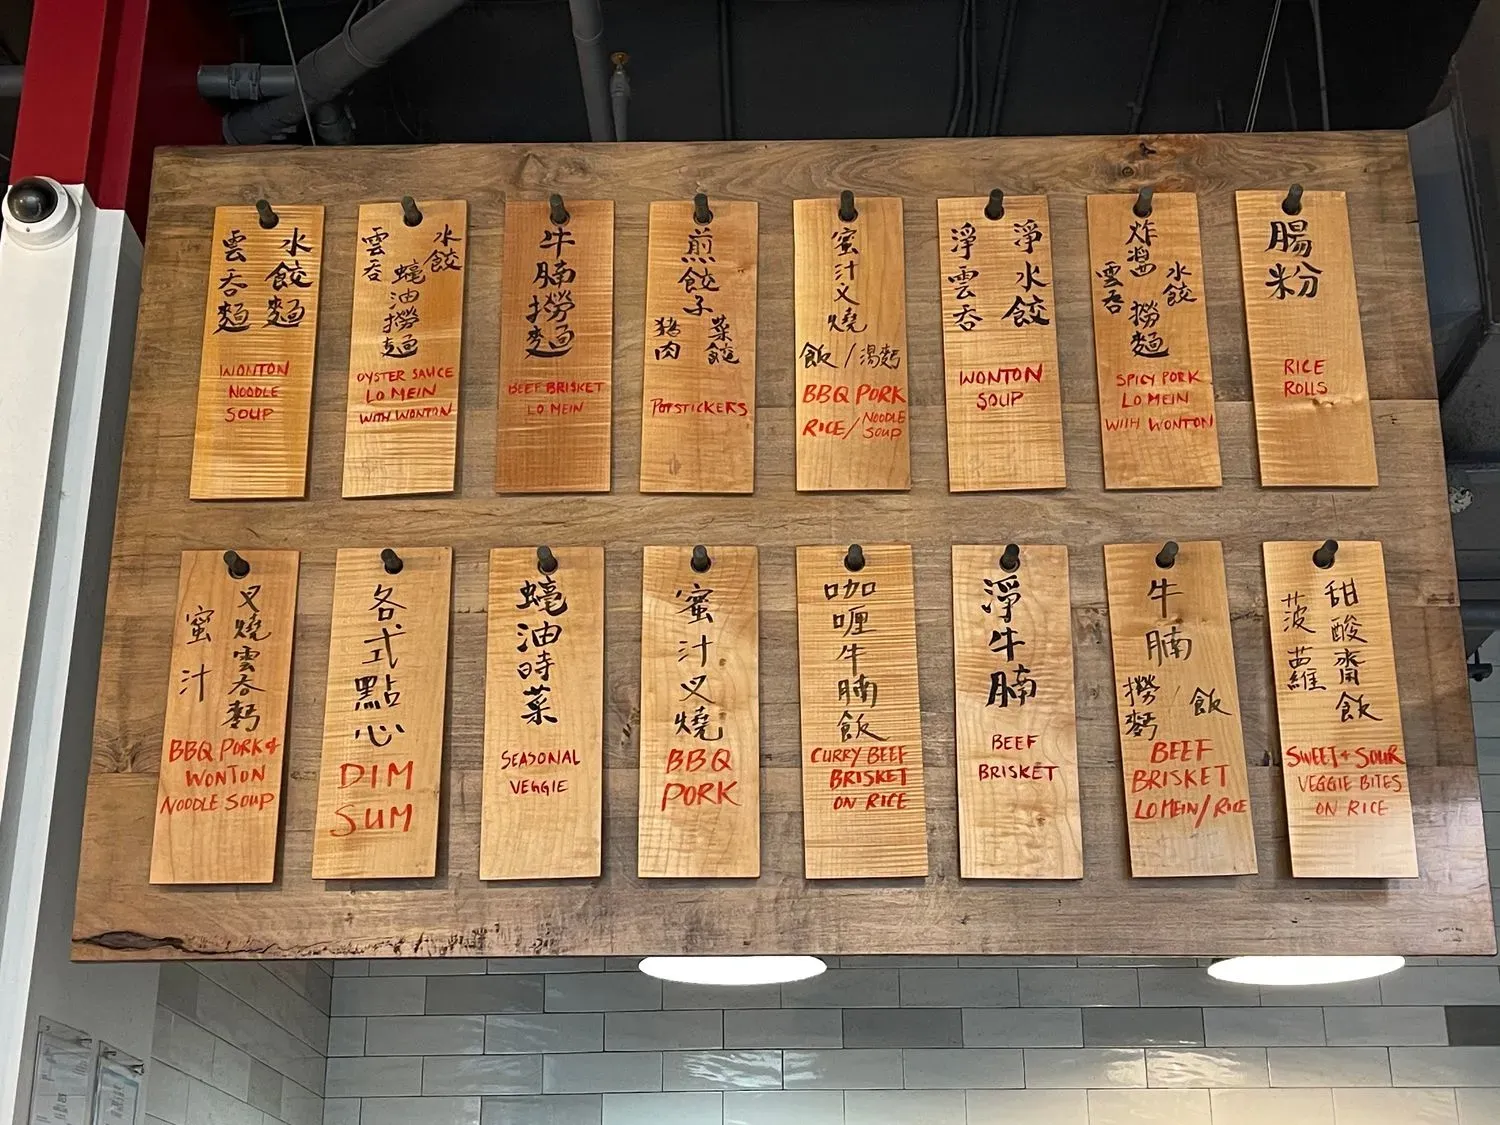 水餃麵
雲吞麵
WONTON
NOODLE
SOUP
水餃
雲吞
蠔油撈麵
OYSTER SAUCE
LO MEIN
WITH WONTON
牛腩撈麵
BEEF BRISKET
LO MEIN
煎餃子
菜餃
豬肉
POTSTICKERS
蜜汁叉燒
飯/湯麪
BBQ PORK
RICE/NOODLE SOUP
淨水餃
淨雲吞
WONTON
SOUP
炸醬撈麵
水餃
雲吞
SPICY PORK
LO MEIN
WITH WONTON
腸粉
RICE
ROLLS
蜜汁
叉燒雲吞麪
BBQ PORK+
WONTON
NOODLE SOUP
各式點心
DIM
SUM
蠔油時菜
SEASONAL
VEGGIE
蜜汁叉燒
BBQ
PORK
咖喱牛腩飯
CURRY BEEF
BRISKET
ON RICE
淨牛腩
BEEF
BRISKET
牛腩
撈麪/飯
BEEF
BRISKET
LO MEIN/RICE
甜酸齋飯
菠蘿
SWEET+SOUR
VEGGIE BITES
ON RICE